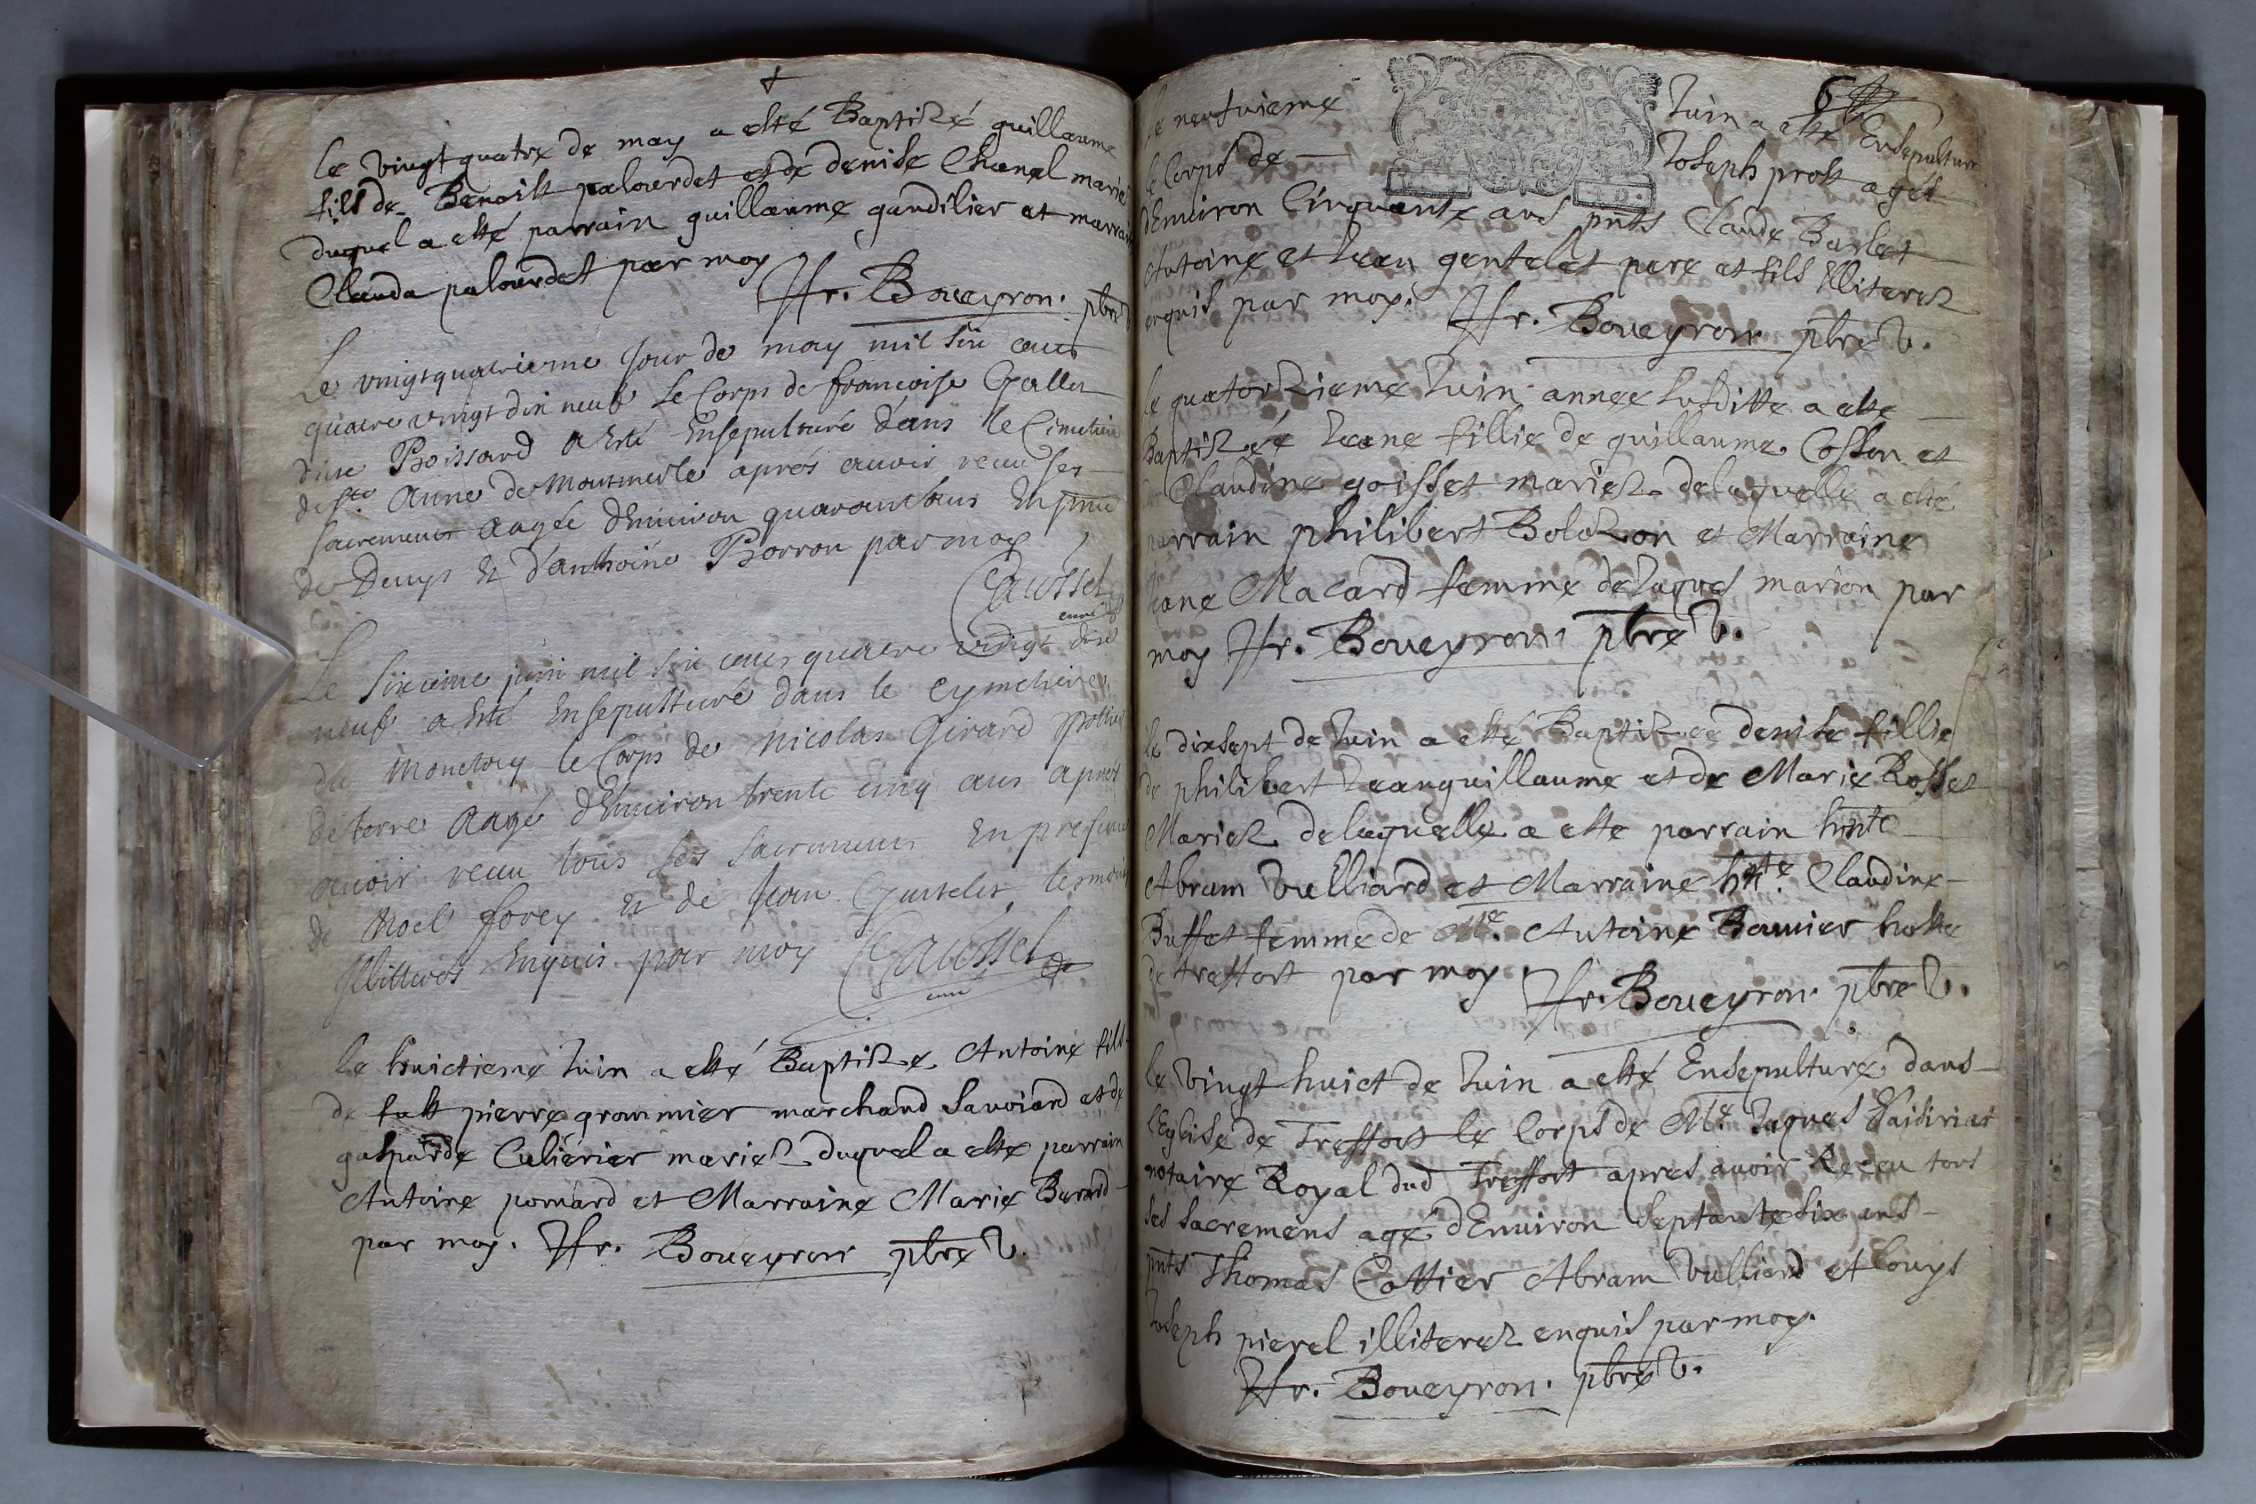 le vingt quatre de may a esté Baptizé guillaume
fils de Benoist palourdet et de denise Chanel mariez
duquel a esté parrain guillaume gandilier et marraine
Clauda palourdet par moy
Fr. Boueyron. pbre V.
Le vingtquatrieme Jour de may mil six cens
quatre vingt dix neuf le Corps de francoise Gallet
dite Poissard a Esté Ensepulturé dans le Cimetiere
de Ste. Anne de Montmerle aprés avoir receu ses
sacremens aagée d'Environ quarante ans En pnce
de Denys et d'anthoine Borron par moy
Gaussel
curé
Le sixieme juin mil six cens quatre vingt dix
neuf a esté Ensepulturé dans le cymetiere
du Monetay le Corps de Nicolas Girard pottier
de terre Aagé d'Environ trente cinq ans apres
avoir receu tous ses sacremens En presence
de Noel forey et de Jean Gentelet tesmoins
Illiterés Enquis par moy Gaussel
curé
le huictieme Juin a esté Baptizé Antoine fils
de fust pierre grommier marchand Savoiard et de
gasparde Culiérier mariez duquel a esté parrain
Antoine pornard et Marraine Marie Burard
par moy. Fr. Boueyron pbre V.
6
le neufvieme Juin a esté Ensepulturé
le Corps de Joseph prost agét
d'Environ Cinquante ans pnts Claude Barlet
Antoine et Jean gentelet pere et fils Illiterez
enquis par moy.
Fr. Boueyron pbre V.
le quatorzieme Juin annee susditte a esté
Baptizéé Jeane fillie de guillaume Cosson et
Claudine goisset mariez de laquelle a esté
parrain philibert Bolozon et Marraine
Jeane Macard femme de Jaques marion par
moy Fr. Boueyron. pbre V.
le dixsept de Juin a esté Baptizee denise fillie
de philibert Jeanguillaume et de Marie Rosset
Mariez de laquelle a esté parrain hnte
Abram Vulliard et Marraine hnte. Claudine
Buffet femme de Me. Antoine Bannier hoste
de treffort par moy
Fr. Boueyron. pbre V.
le vingt huict de Juin a esté Ensepulturé dans
l'Eglise de Treffort le Corps de Me. Jaques
notaire Royal dud Treffort apres avoir Receu tous
ses sacremens agé d'Environ septante six ans
pnts Thomas Cottier Abram Vulliard et Louys
Joseph pierel illiterez enquis par moy.
Fr. Boueyron. pbre V.